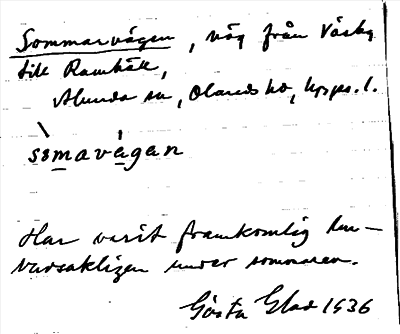 Sommarvägen, väg från Väsby
till Ramhäll,
Alunda sn, Olands hd, Upps. l.
sòmavá̱gan
Har varit framkomlig hu-
vudsakligen under sommaren.
Gösta Glad 1936